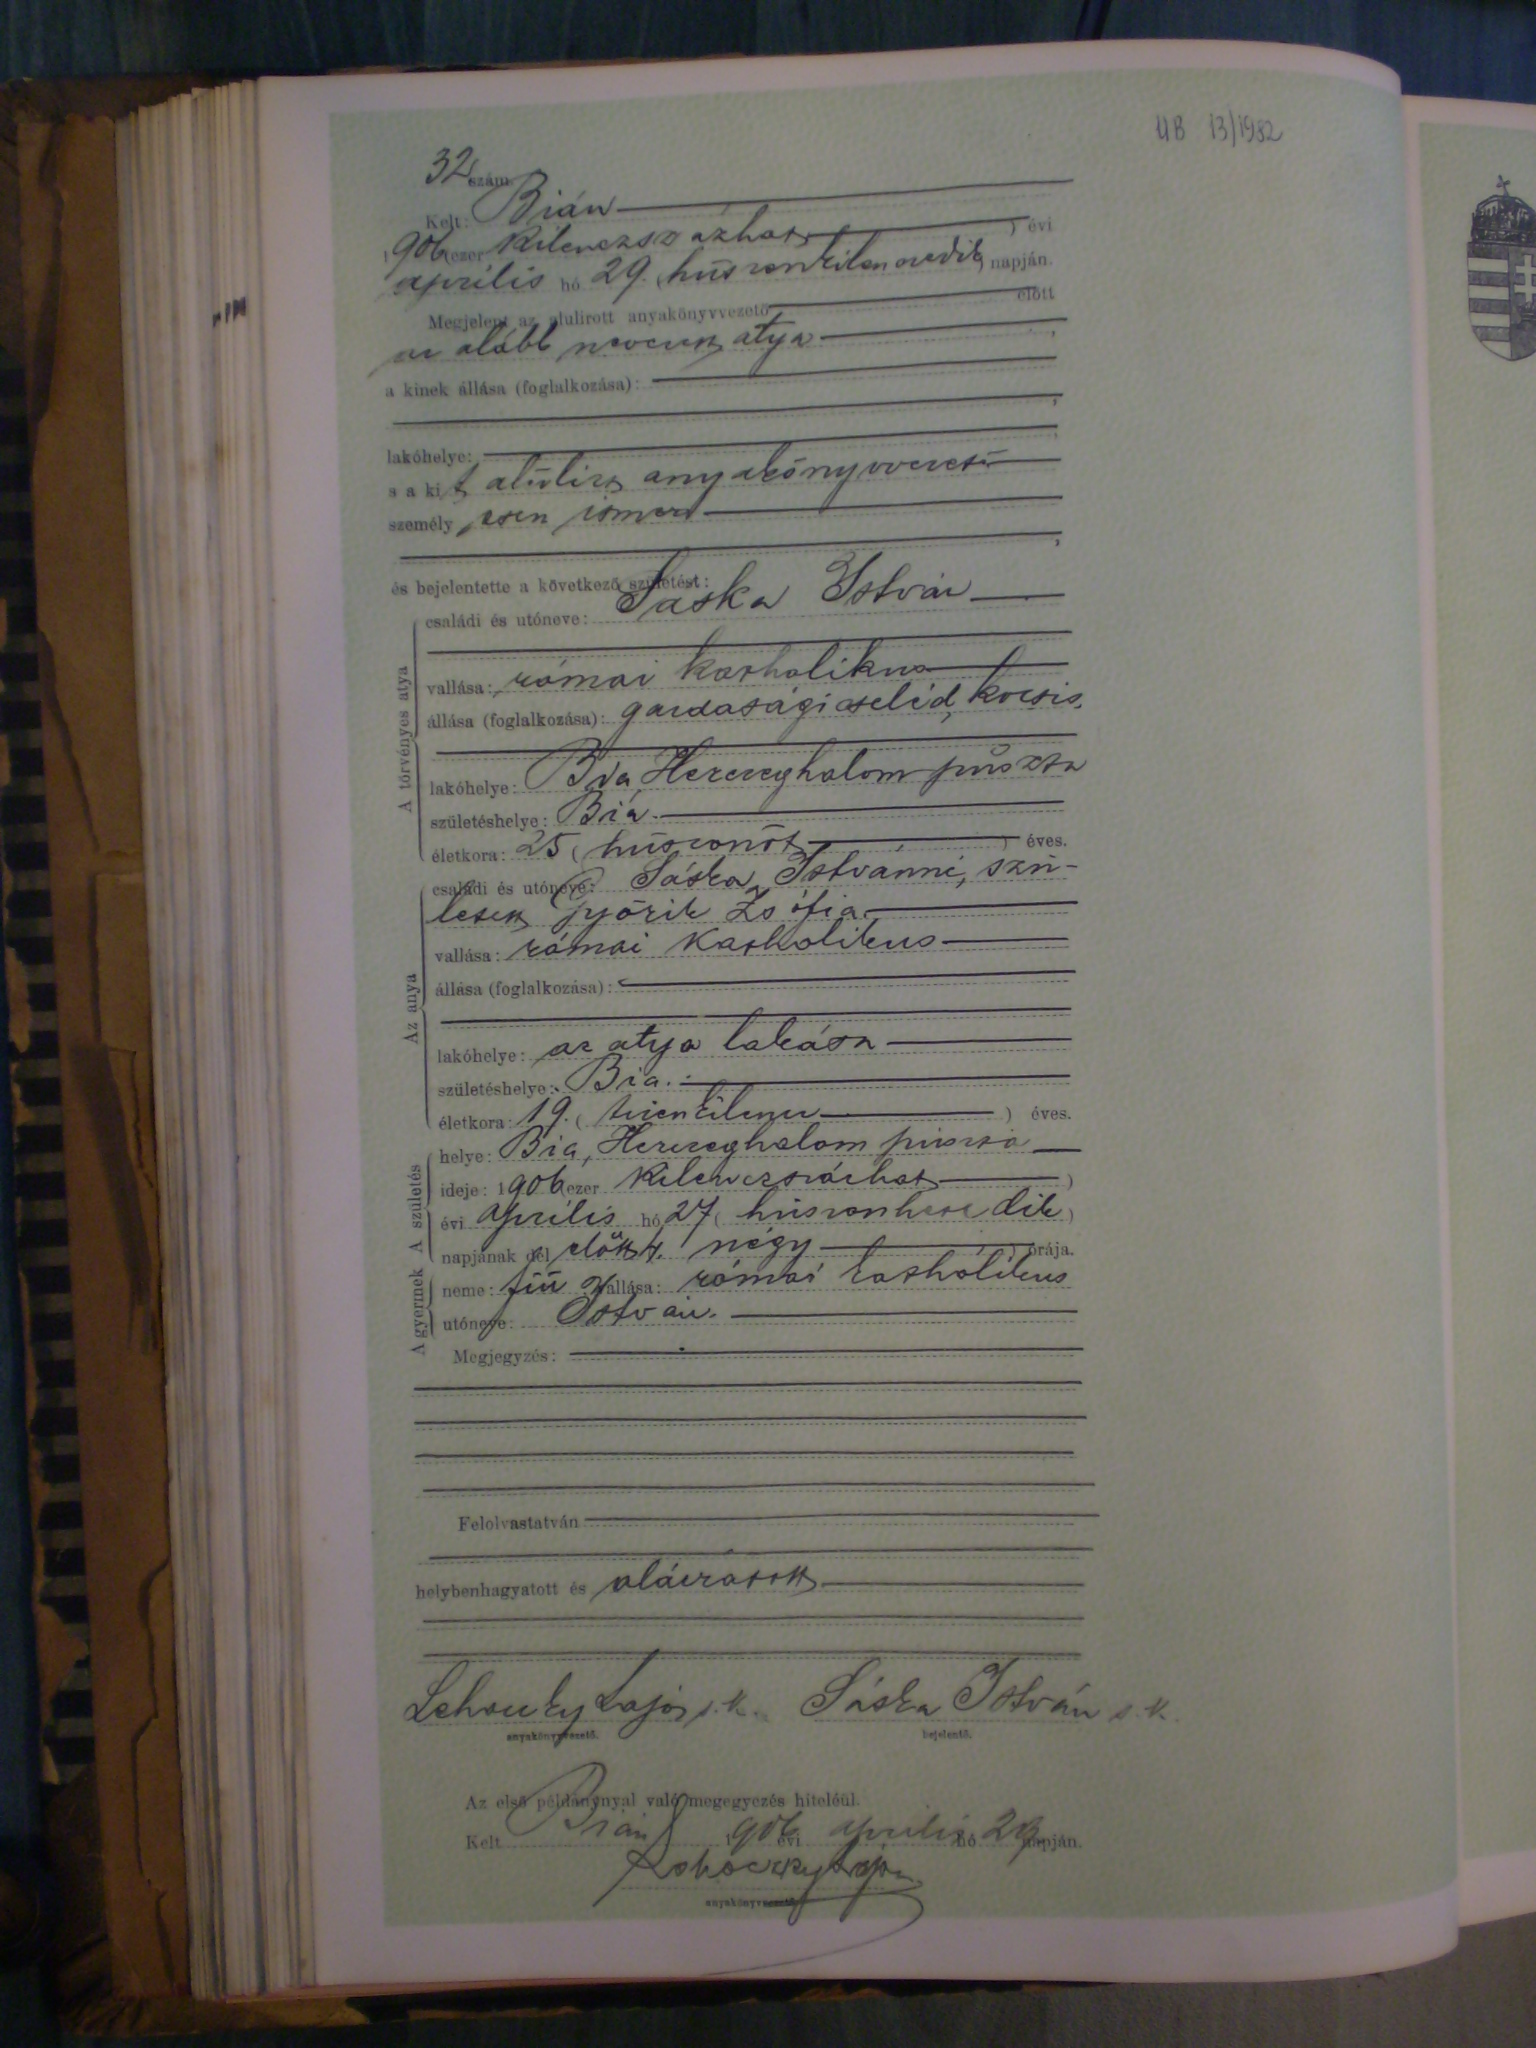 UB 13/1982
32 szám.
Kelt: Bián
1906 (ezer kilenczszázhat) évi
április hó 29. (huszonkilenczedik) napján.
Megjelent az alulirott anyakönyvvezető előtt
az alább nevezett atya
a kinek állása (foglalkozása):
lakóhelye:
s a kit alulirt anyakönyvvezető
személyesen ismer
és bejelentette a következő születést:
A törvényes atya
családi és utóneve: Sáska István
vallása: római katholikus
állása (foglalkozása): gazdasági cseléd, kocsis,
lakóhelye: Bia, Herczeghalom puszta
születéshelye: Bia.
életkora: 25 (huszonöt) éves.
Az anya
családi és utóneve: Sáska Istvánné, szü-
letett Győrik Zsófia
vallása: római katholikus
állása (foglalkozása):
lakóhelye: az atya lakása
születéshelye: Bia.
életkora: 19. (tizenkilencz) éves.
A születés
helye: Bia, Herczeghalom puszta
ideje: 1906 (ezer kilenczszázhat)
évi április hó 27 (huszonhetedik)
napjának dél előtt 4. négy) órája.
A gyermek
neme: fiú vallása: római katholikus
utóneve: István.
Megjegyzés:
Felolvastatván
helybenhagyatott és aláíratott
Lehoczky Lajos s.k. Sáska István s.k.
anyakönyvvezető. bejelentő.
Az első példánynyal való megegyezés hiteléül.
Kelt Bián 1906 évi április hó 29 napján.
Lehoczky Lajos
anyakönyvvezető.